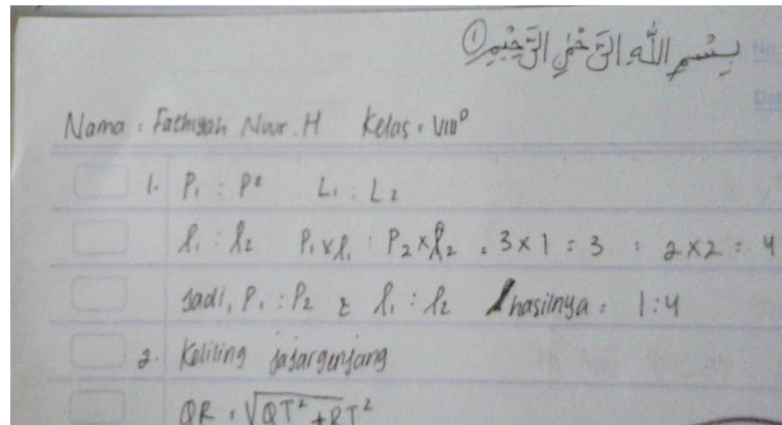 بِسْمِ اللَّهِ الرَّحْمٰنِ الرَّحِيْمِ ①
No.
Nama : Fathiyah Nuur. H Kelas : VIII D
1. P₁ : P² L₁ : L₂
l₁ : l₂ P₁ x l₁ : P₂ x l₂ = 3 x 1 = 3 : 2 x 2 = 4
Jadi, P₁ : P₂ & l₁ : l₂ hasilnya = 1:4
2. Keliling jajargenjang
QR = √QT² + RT²